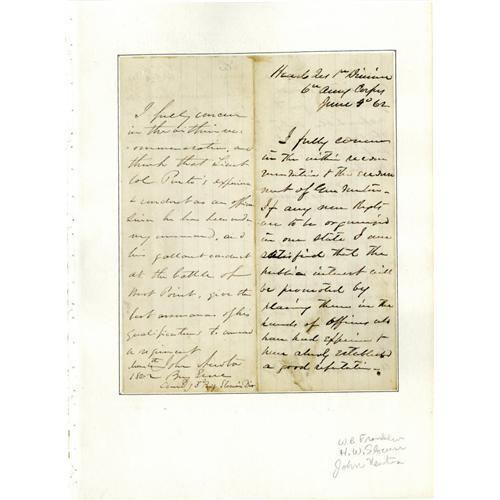 I fully concur
in the within re-
commendation, and
think that Lieut
Col Pinto's experience
& conduct as an officer
since he has been under
my command, and
his gallant conduct
at the battle of
West Point, give the
best assurance of his
qualifications to command
a regiment
John Newton
1862 Brig Genl
Comdg 3d Brig Slocum's Div
Head Qrs 1st Division
6th Army Corps
June 4th 62
I fully concur
in the within recom
mendation & the endorse
ment of Gen Newton.
If any new Regts
are to be organized
in our state I am
satisfied that the
public interest will
be promoted by
placing them in the
hands of officers who
have had experience &
have already established
a good reputation.
W.B. Franklin
H.W. Slocum
John Newton